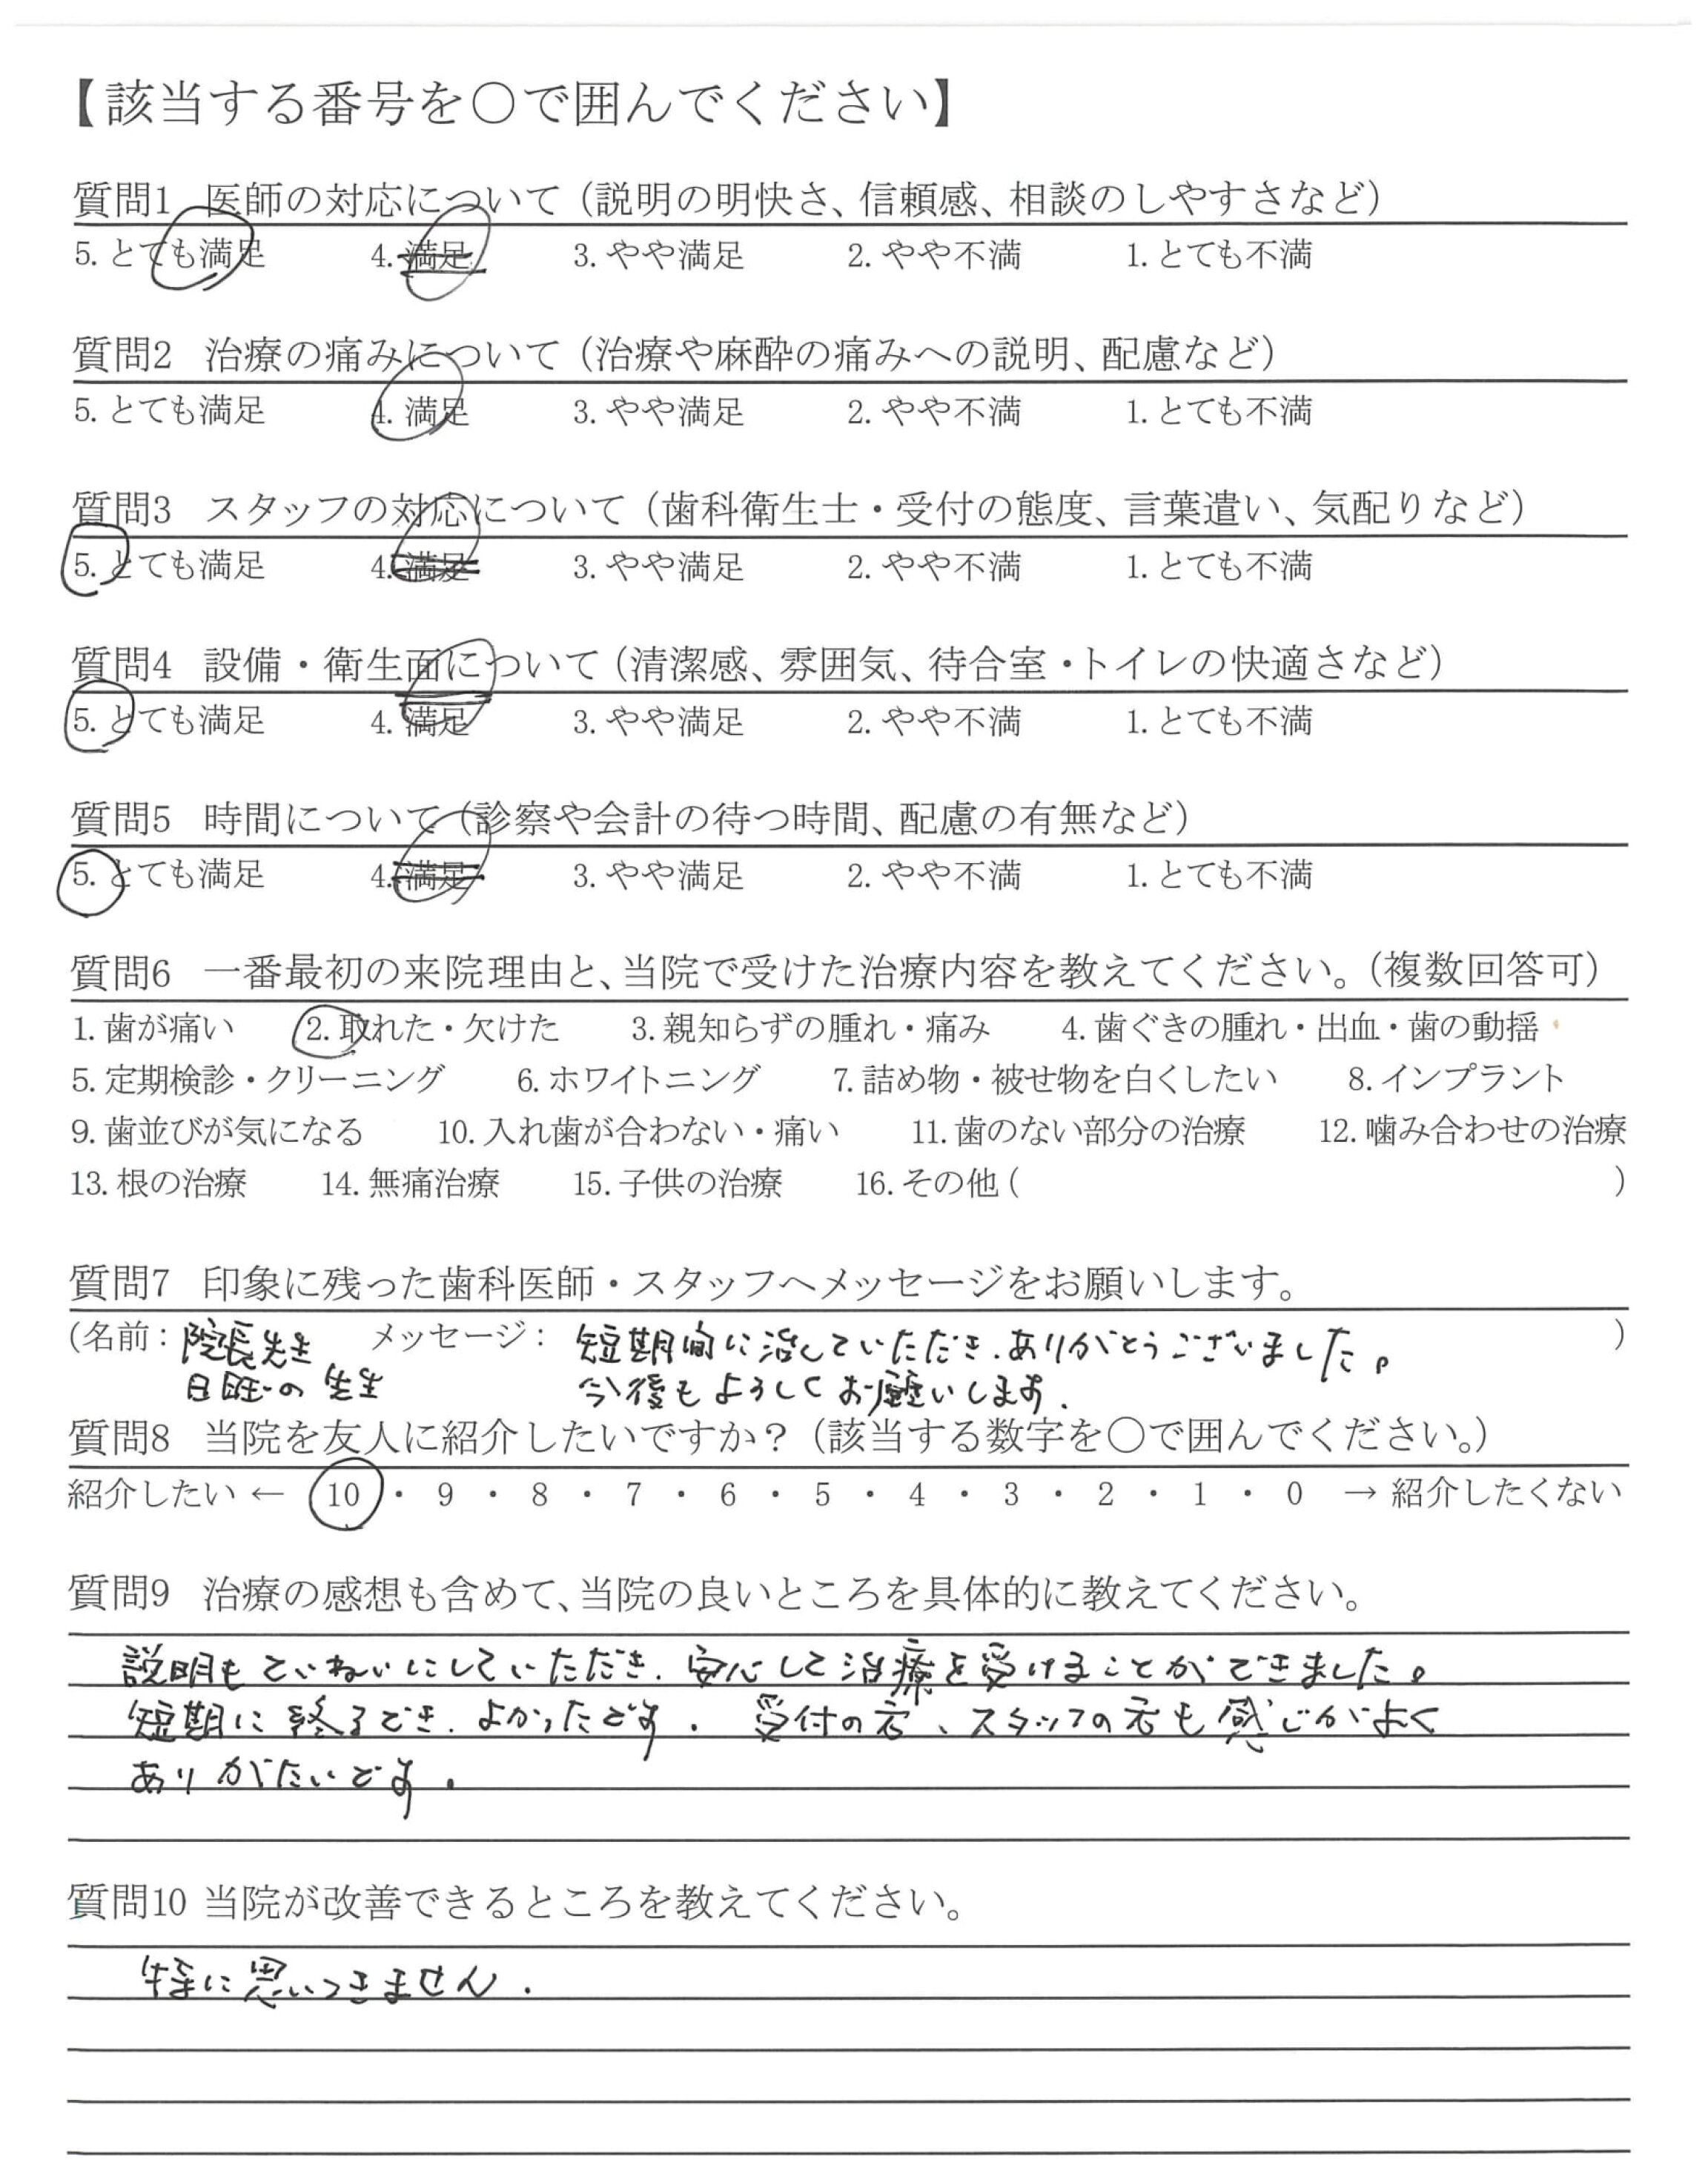 【該当する番号を〇で囲んでください】
質問1 医師の対応について（説明の明快さ、信頼感、相談のしやすさなど）
5. とても満足 4. 満足 3. やや満足 2. やや不満 1. とても不満
質問2 治療の痛みについて（治療や麻酔の痛みへの説明、配慮など）
5. とても満足 4. 満足 3. やや満足 2. やや不満 1. とても不満
質問3 スタッフの対応について（歯科衛生士・受付の態度、言葉遣い、気配りなど）
5. とても満足 4. 満足 3. やや満足 2. やや不満 1. とても不満
質問4 設備・衛生面について（清潔感、雰囲気、待合室・トイレの快適さなど）
5. とても満足 4. 満足 3. やや満足 2. やや不満 1. とても不満
質問5 時間について（診察や会計の待つ時間、配慮の有無など）
5. とても満足 4. 満足 3. やや満足 2. やや不満 1. とても不満
質問6 一番最初の来院理由と、当院で受けた治療内容を教えてください。（複数回答可）
1. 歯が痛い 2. 取れた・欠けた 3. 親知らずの腫れ・痛み 4. 歯ぐきの腫れ・出血・歯の動揺
5. 定期検診・クリーニング 6. ホワイトニング 7. 詰め物・被せ物を白くしたい 8. インプラント
9. 歯並びが気になる 10. 入れ歯が合わない・痛い 11. 歯のない部分の治療 12. 噛み合わせの治療
13. 根の治療 14. 無痛治療 15. 子供の治療 16. その他（ ）
質問7 印象に残った歯科医師・スタッフへメッセージをお願いします。
（名前： 院長先生 メッセージ： 短期間に治していただき、ありがとうございました。 ）
日曜の先生 今後もよろしくお願いします。
質問8 当院を友人に紹介したいですか？（該当する数字を〇で囲んでください。）
紹介したい ← 10 ・ 9 ・ 8 ・ 7 ・ 6 ・ 5 ・ 4 ・ 3 ・ 2 ・ 1 ・ 0 → 紹介したくない
質問9 治療の感想も含めて、当院の良いところを具体的に教えてください。
説明もていねいにしていただき、安心して治療を受けることができました。
短期に終了でき、よかったです。 受付の方、スタッフの方も感じがよく
ありがたいです。
質問10 当院が改善できるところを教えてください。
特に思いつきません。